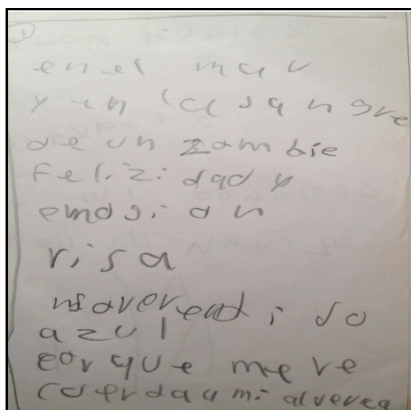 en el mar
y en la sangre
de un zombie
Felizidad y
emosion
risa
azul
porque me re
cuerda a mi alverca